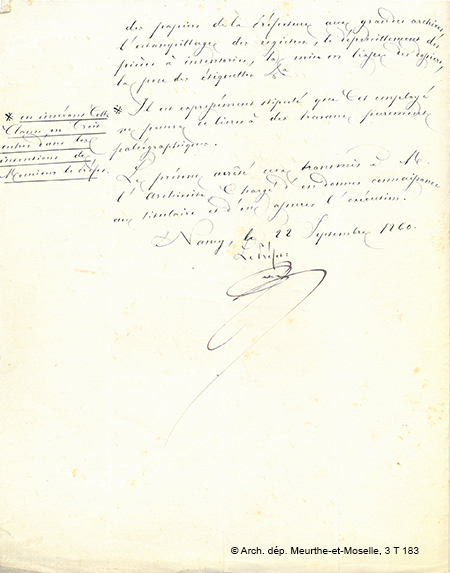 des papiers de la Préfecture aux grandes archives,
l'estampillage des registres, le dépouillement des
pièces à inventorier, la mise en liasses des papiers,
la pose des étiquettes &a
* Il est expressément stipulé que cet employé
ne pourra se livrer à des travaux purement
paléographiques.
* en insérant cette
Clause, on Croit
entrer dans les
intentions de
Monsieur le Préfet.
Le présent arrêté sera transmis à M.
l'Archiviste Chargé d'en donner connaissance
au titulaire et d'en assurer l'exécution.
Nancy, le 22 Septembre 1860.
Le Préfet
© Arch. dép. Meurthe-et-Moselle, 3 T 183